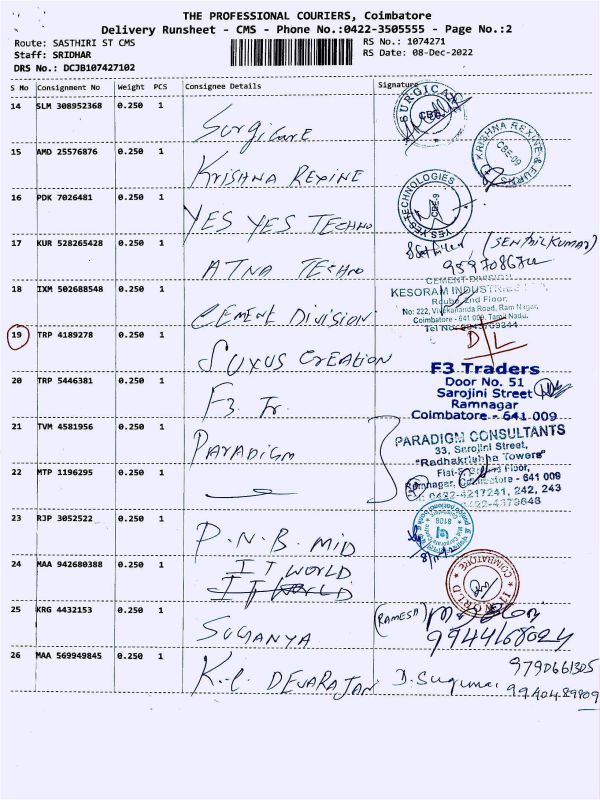 THE PROFESSIONAL COURIERS, Coimbatore
Delivery Runsheet - CMS - Phone No.:0422-3505555 - Page No.:2
Route: SASTHIRI ST CMS
RS No.: 1074271
Staff: SRIDHAR
RS Date: 08-Dec-2022
DRS No.: DCJB107427102
S No Consignment No Weight PCS Consignee Details Signature
14 SLM 308952368 0.250 1
Surgicare
SURGICAR
CBE
15 AMD 25576876 0.250 1
Krishna Rexine
KRISHNA REXINE & FURNS
CBE-09
16 PDK 7026481 0.250 1
YES YES Techno
YES YES TECHNOLOGIES
CBE-9
17 KUR 528265428 0.250 1
ATNA Techno
(SENTHILKUMAR)
18 IXM 502688548 0.250 1
Cement Division
CEMENT DIVISION
KESORAM INDUSTRIES
2nd Floor,
No: 222, Vivekananda Road, Ram Nagar,
Coimbatore - 641 009, Tamil Nadu.
Tel No:
19 TRP 4189278 0.250 1
Suxus Creation
D/L
20 TRP 5446381 0.250 1
F3 Tr.
F3 Traders
Door No. 51
Sarojini Street
Ramnagar
Coimbatore - 641 009
21 TVM 4581956 0.250 1
Paradigm
PARADIGM CONSULTANTS
33, Sarojini Street,
"Radhakrishna Towers"
Floor,
Ramnagar, Coimbatore - 641 009
0422-4217241, 242, 243
22 MTP 1196295 0.250 1
23 RJP 3052522 0.250 1
P.N.B. MID
24 MAA 942680388 0.250 1
IT WORLD
IT WORLD
IT WORLD
COIMBATORE
25 KRG 4432153 0.250 1
SUGANYA
(RAMESH)
9944168024
26 MAA 569949845 0.250 1
K.C. DEVARAJAN
D. Sugumar
9790661305
9940489809